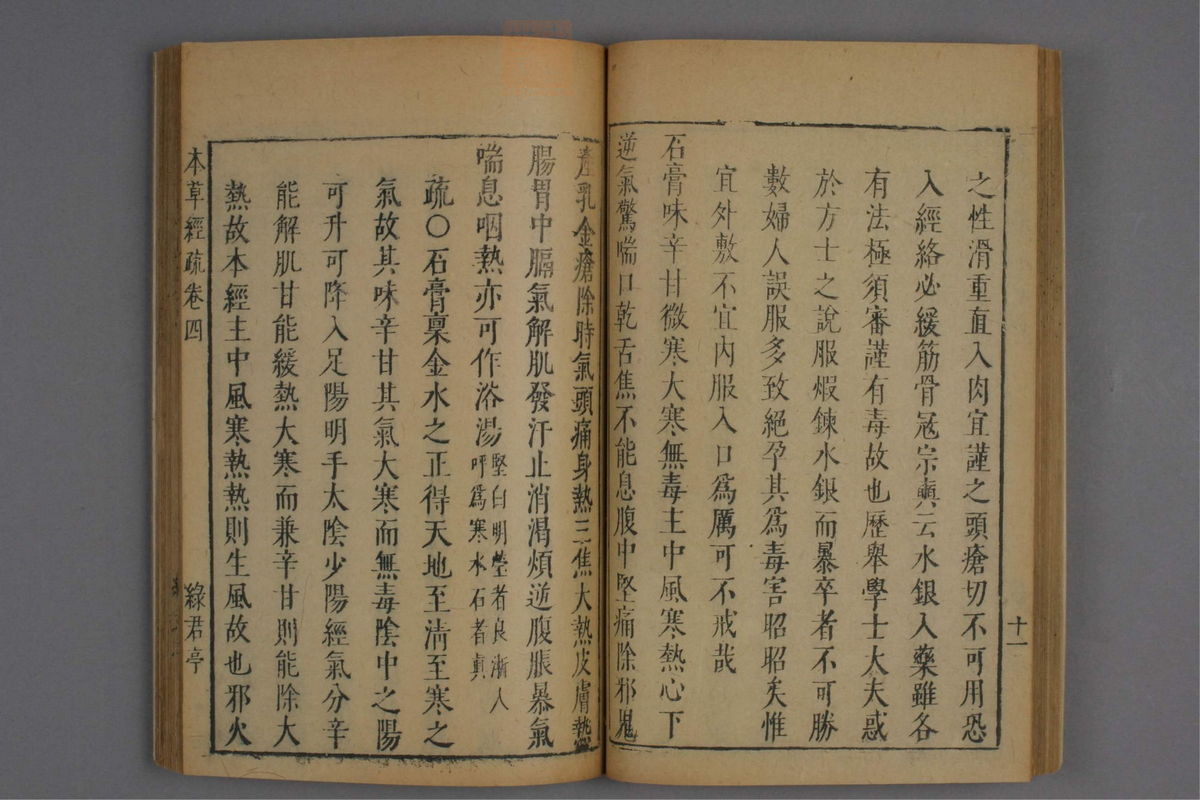 十一
之性滑重直入肉宜謹之頭瘡切不可用恐
入經絡必緩筋骨冦宗奭云水銀入藥雖各
有法極須審謹有毒故也歷舉學士大夫惑
於方士之說服煆鍊水銀而暴卒者不可勝
數婦人誤服多致絕孕其爲毒害昭昭矣惟
宜外敷不宜内服入口爲厲可不戒哉
石膏味辛甘微寒大寒無毒主中風寒熱心下
逆氣驚喘口乾舌焦不能息腹中堅痛除邪鬼
產乳金瘡除時氣頭痛身熱三焦大熱皮膚熱
腸胃中膈氣解肌發汗止消渴煩逆腹脹暴氣
喘息咽熱亦可作浴湯堅白明瑩者良浙人
呼爲寒水石者眞
疏〇石膏稟金水之正得天地至淸至寒之
氣故其味辛甘其氣大寒而無毒陰中之陽
可升可降入足陽明手太陰少陽經氣分辛
能解肌甘能緩熱大寒而兼辛甘則能除大
熱故本經主中風寒熱熱則生風故也邪火
本草經疏卷四
綠君亭